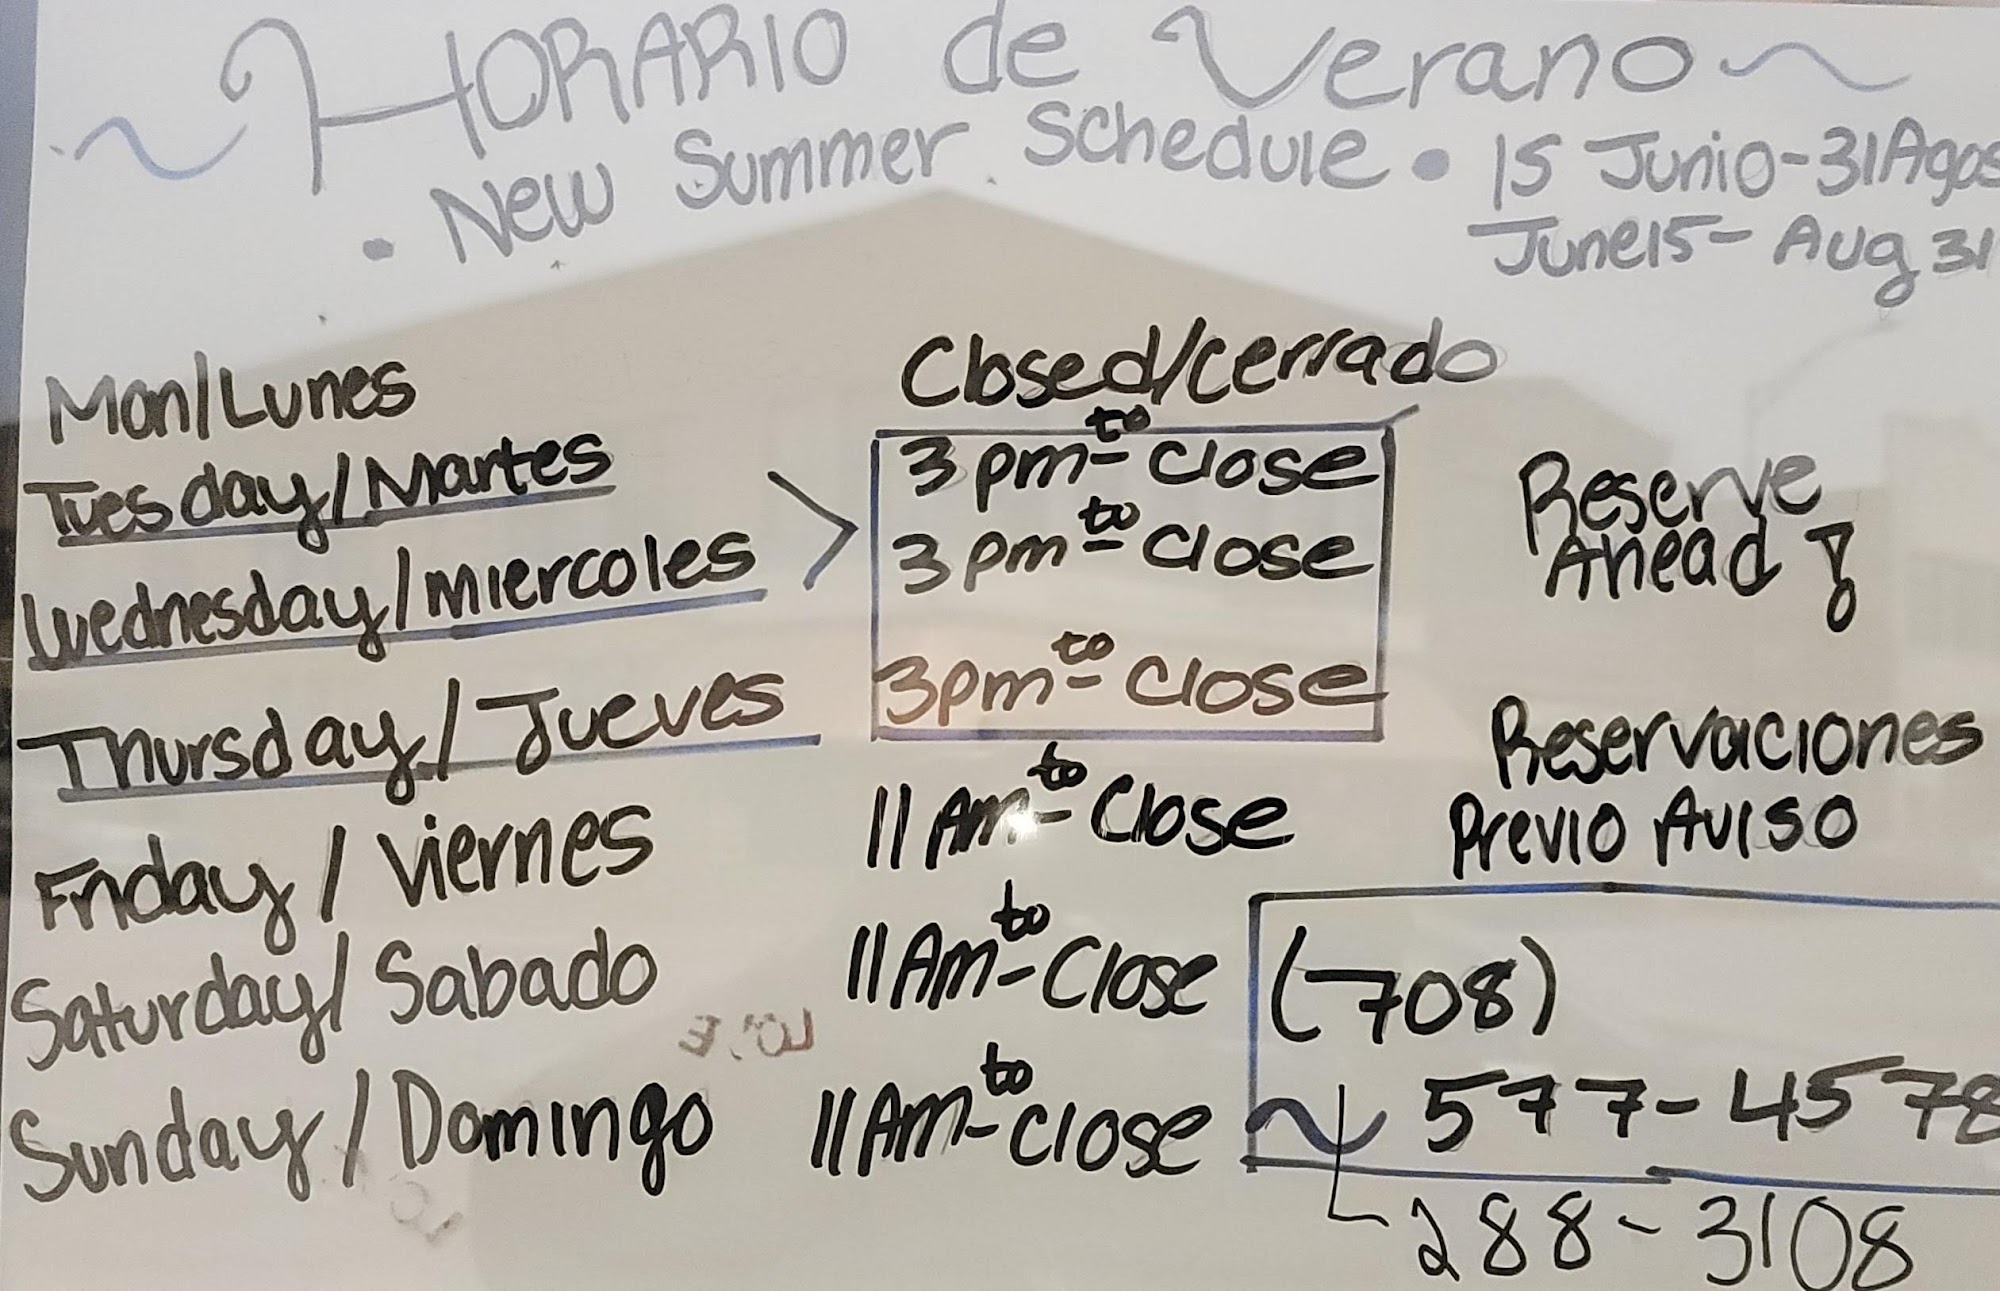 ~ HORARIO de Verano ~
• New Summer Schedule • 15 Junio-31 Agos
June 15 - Aug 31
Mon/Lunes Closed/cerrado
Tuesday/Martes 3pm - to close
Wednesday/Miercoles 3pm - to close
Thursday/Jueves 3pm - to close
Friday/Viernes 11 Am - to Close
Saturday/Sabado 11 Am - to Close
Sunday/Domingo 11 Am - to close
Reserve
Ahead!
Reservaciones
Previo Aviso
(708)
577-4578
288-3108